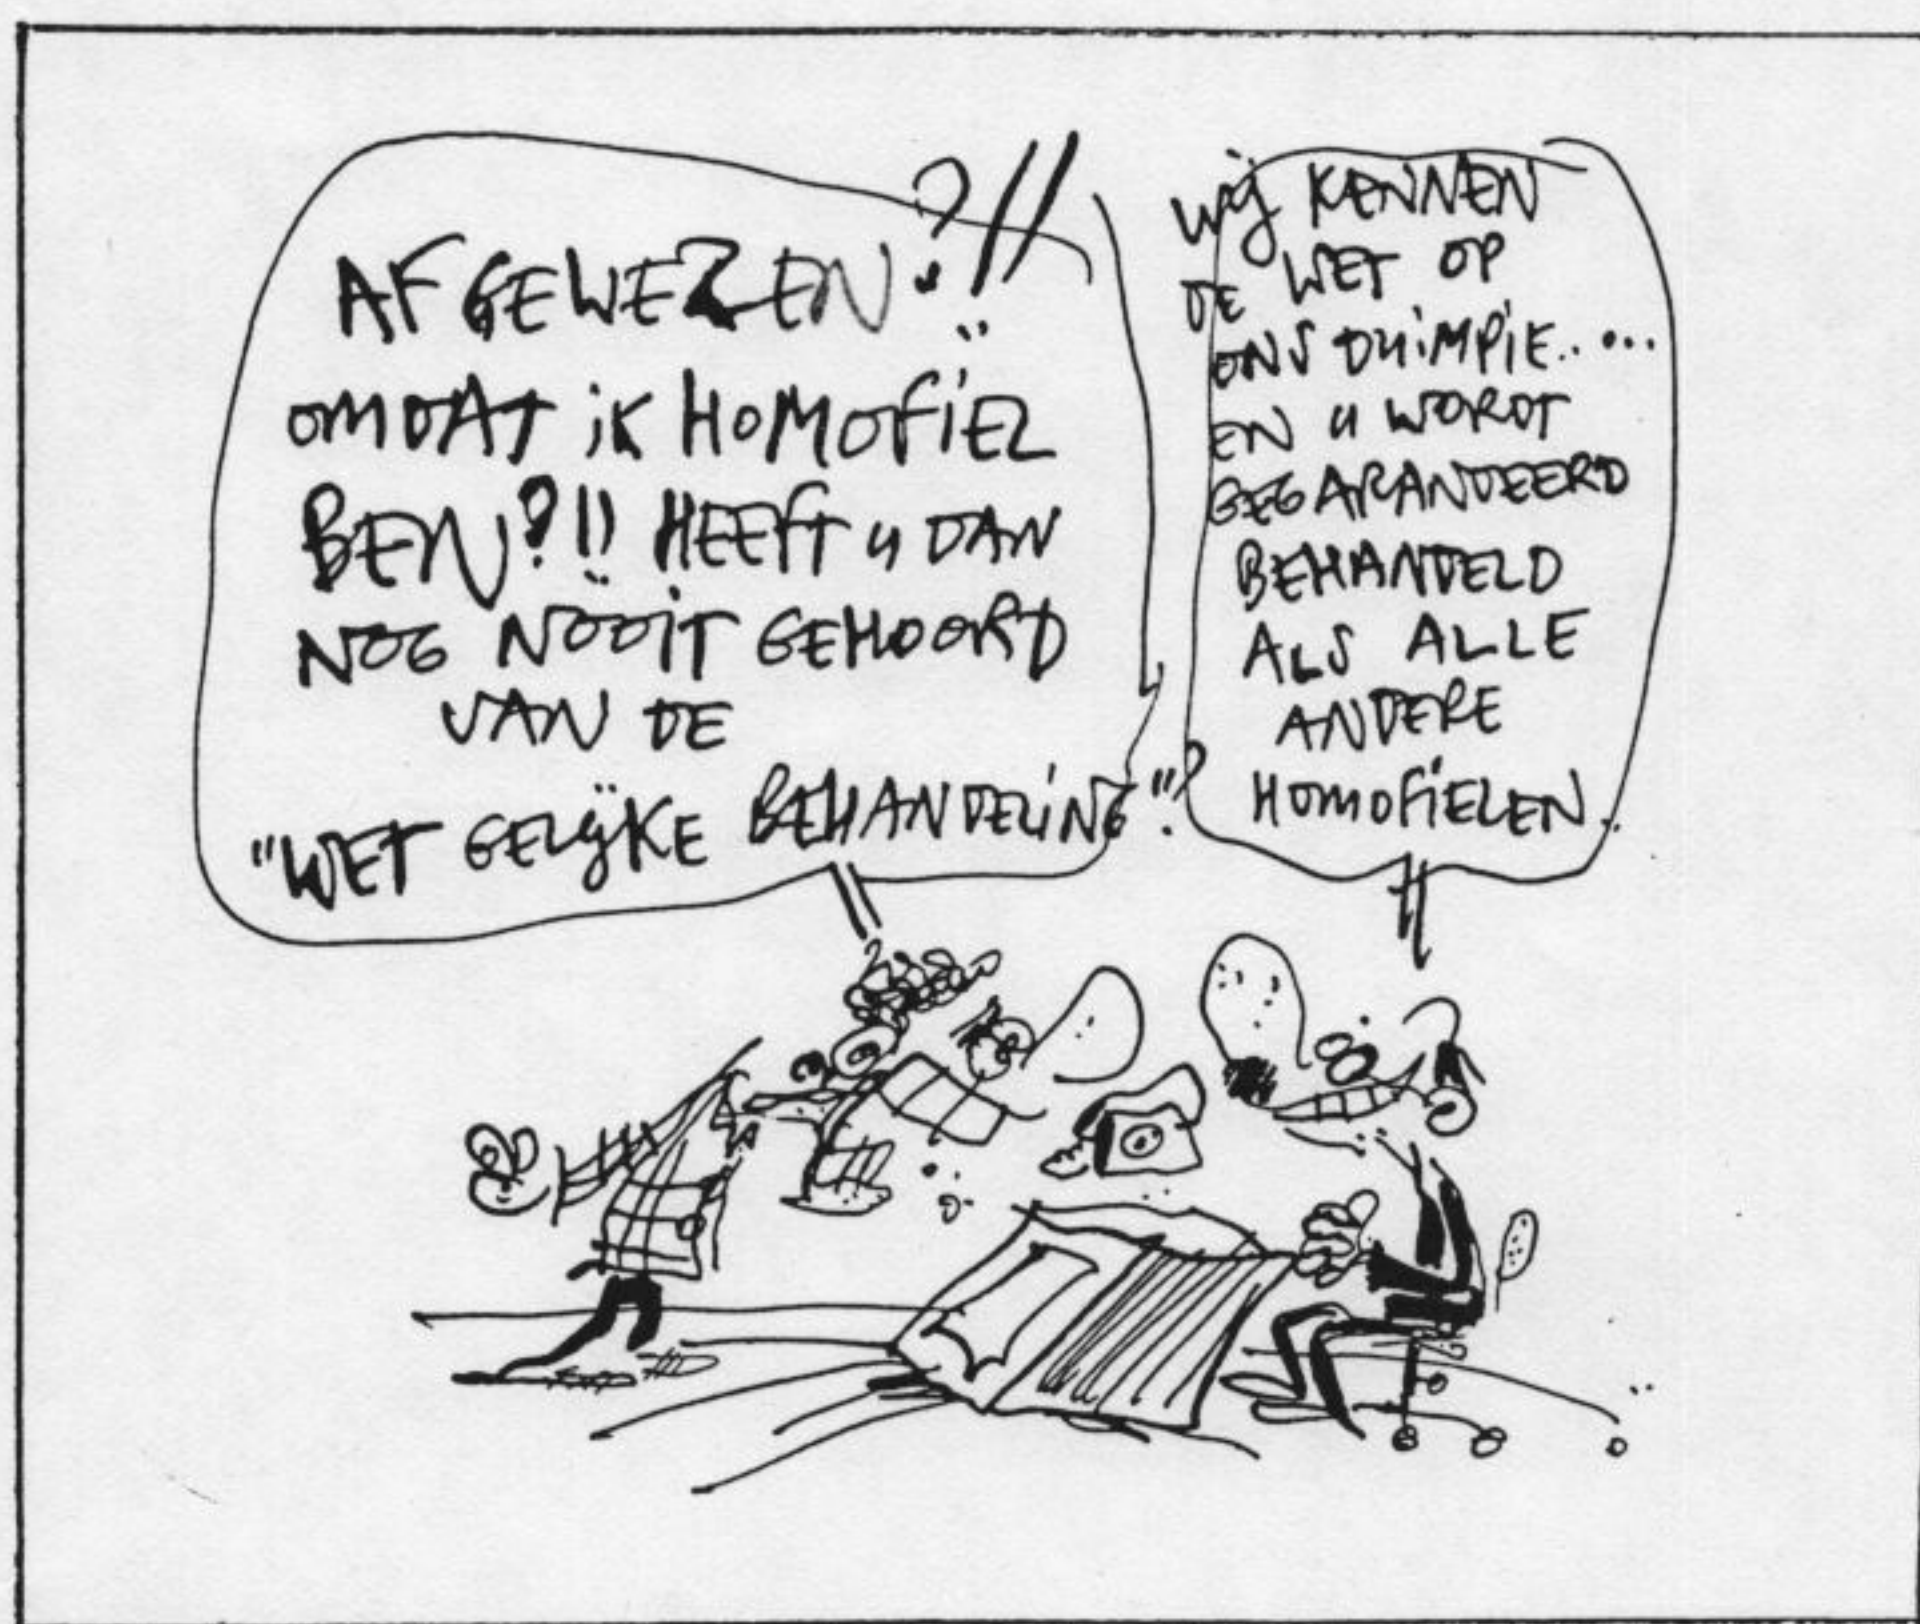 AFGEWEZEN?!!
OMDAT iK HOMOFiEL
BEN?!! HEEFT u DAN
NOG NOOiT GEHOORD
VAN DE
"WET GELijKE BEHANDELiNG"?
Wij KENNEN
DE WET OP
ONS DuiMPiE.....
EN u WORDT
GEGARANDEERD
BEHANDELD
ALS ALLE
ANDERE
HOMOFiELEN.